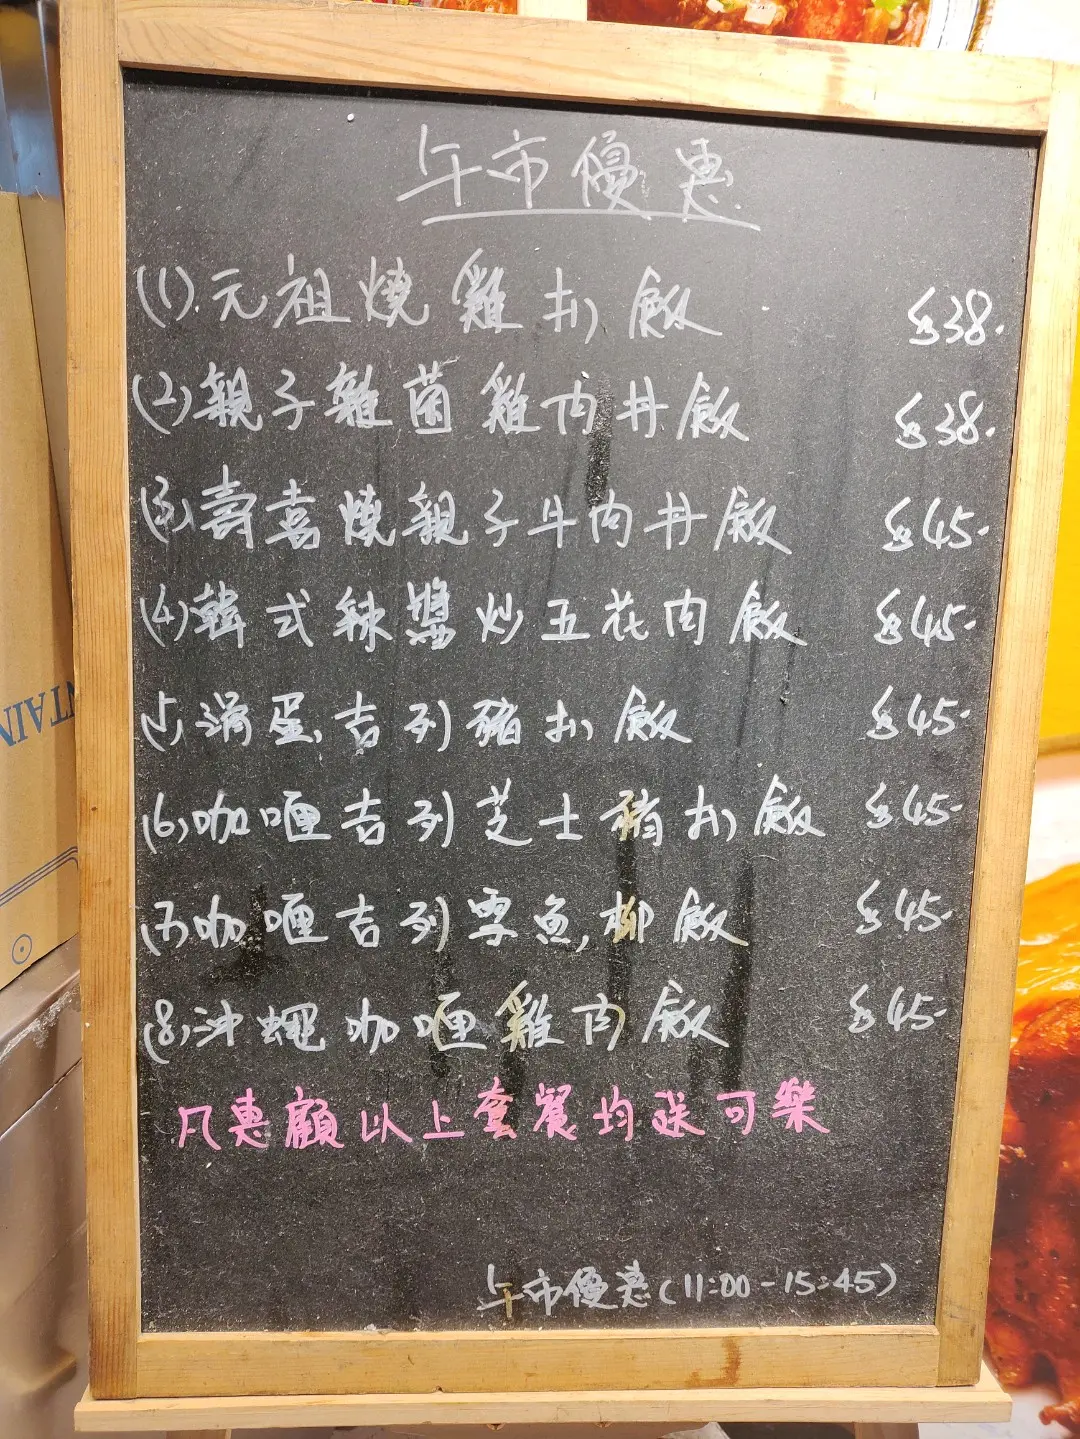 午市優惠
(1).元祖燒雞扒飯 $38.
(2)親子雜菌雞肉丼飯 $38.
(3)壽喜燒親子牛肉丼飯 $45-
(4)韓式辣醬炒五花肉飯 $45-
(5)滑蛋吉列豬扒飯 $45-
(6)咖喱吉列芝士豬扒飯 $45-
(7)咖喱吉列雪魚柳飯 $45-
(8)沖繩咖喱雞肉飯 $45-
凡惠顧以上套餐均送可樂
午市優惠(11:00-15:45)